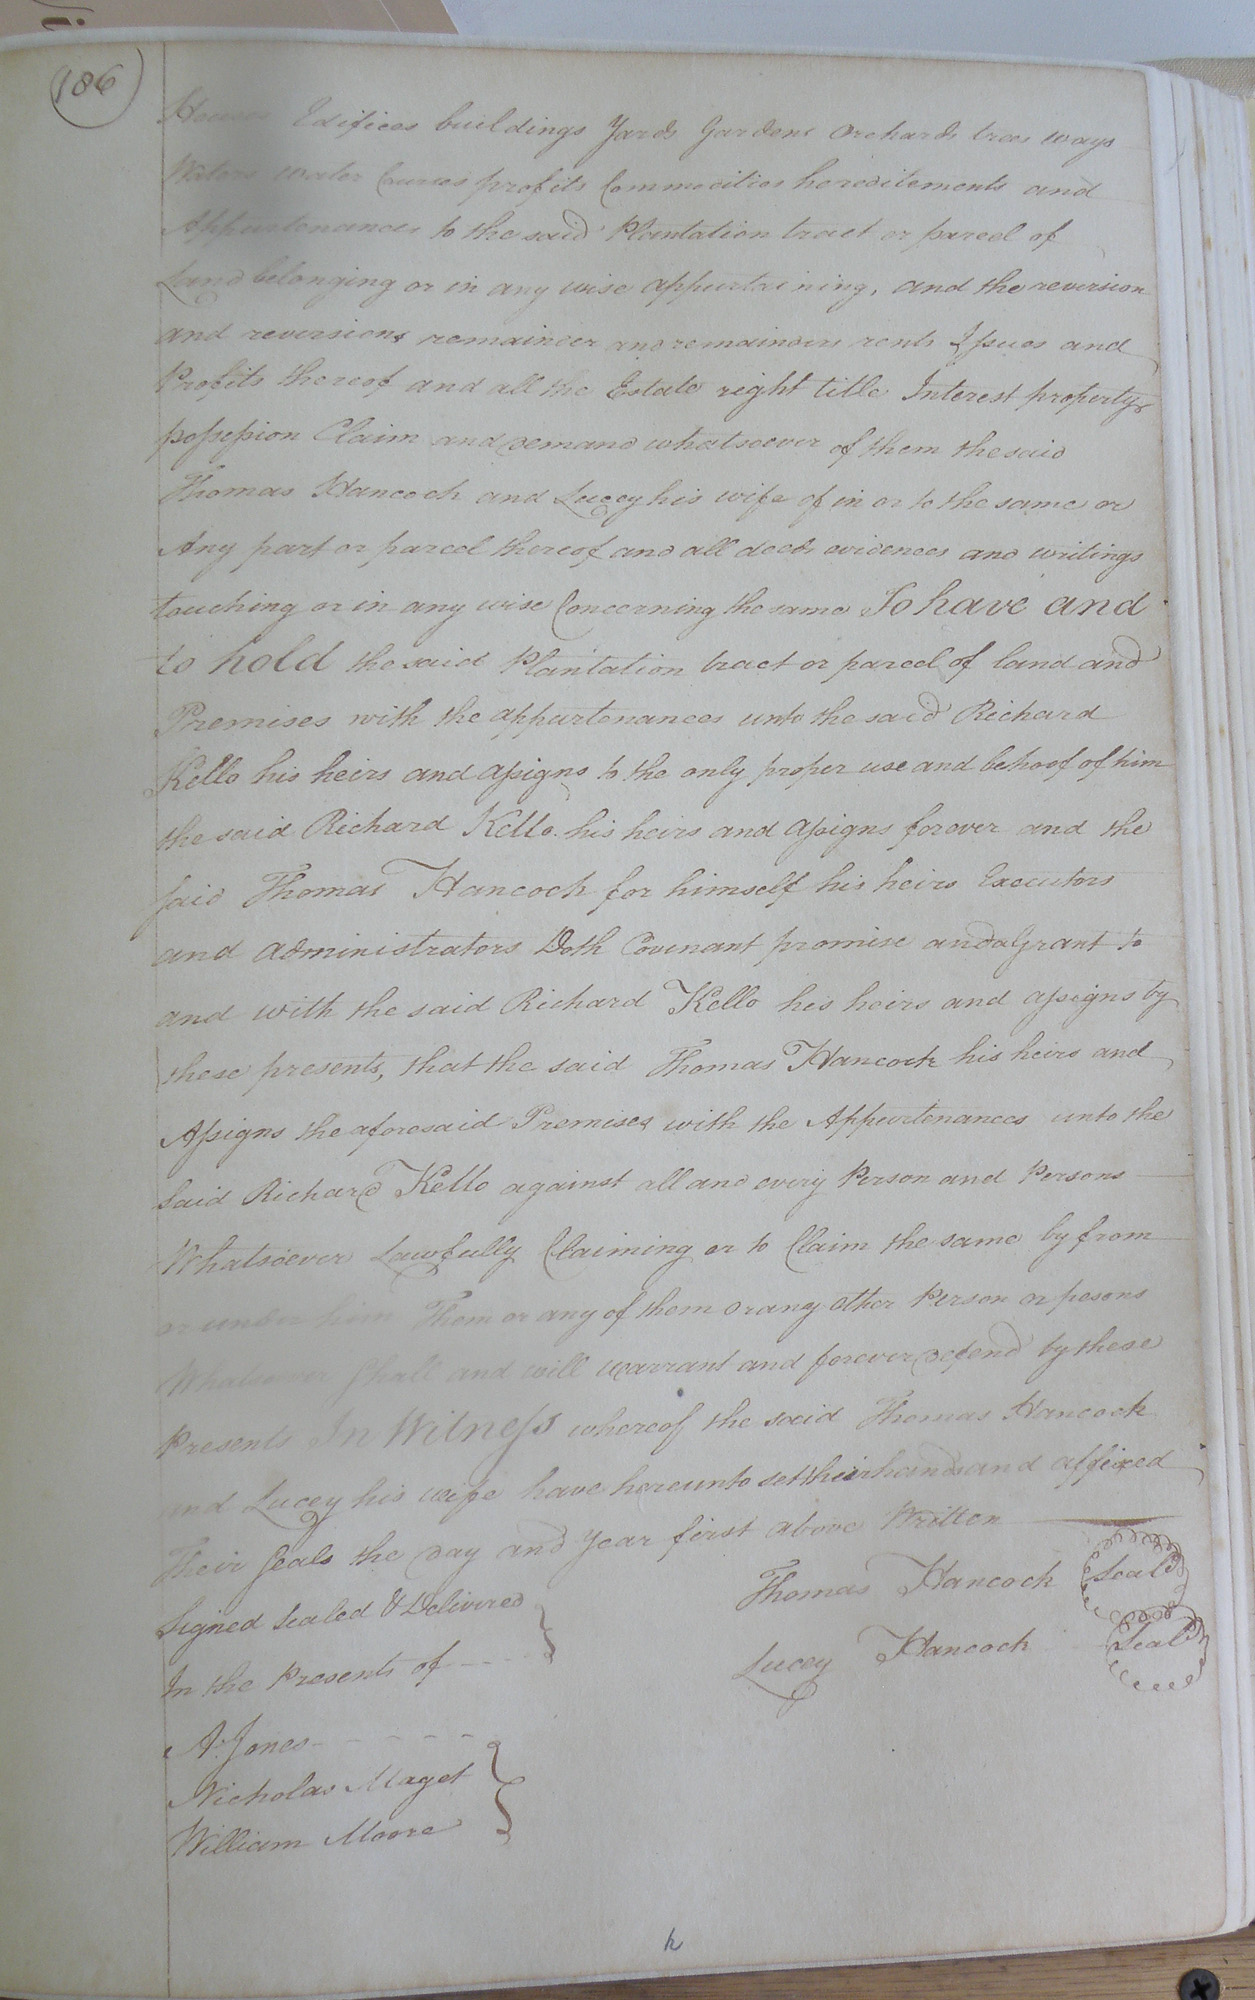 186
Houses Edifices buildings Yards Gardens Orchards trees ways
Waters water Courses profits Commodities hereditements and
Appurtenances to the said Plantation tract or parcel of
Land belonging or in any wise appurtaining, and the reversion
and reversions remainder and remainders rents Issues and
Profits thereof and all the Estate right title Interest property
possession Claim and demand whatsoever of them the said
Thomas Hancock and Lucey his wife of in or to the same or
Any part or parcel thereof and all deeds evidences and writings
touching or in any wise Concerning the same To have and
to hold the said Plantation tract or parcel of land and
Premises with the appurtenances unto the said Richard
Kello his heirs and assigns to the only proper use and behoof of him
the said Richard Kello his heirs and assigns forever and the
said Thomas Hancock for himself his heirs Executors
and administrators Doth Covenant promise and Grant to
and with the said Richard Kello his heirs and assigns by
these presents, that the said Thomas Hancock his heirs and
Assigns the aforesaid Premises with the Appurtenances unto the
Said Richard Kello against all and every Person and Persons
Whatsoever Lawfully Claiming or to Claim the same by from
or under him Them or any of them or any other Person or pesons
Whatsoever shall and will warrant and forever defend by these
Presents In Witness whereof the said Thomas Hancock
and Lucey his wife have hereunto set their hands and affixed
Their Seals the day and year first above Written
Signed Sealed & Delivered
In the Presents of
Thomas Hancock Seal
Lucey Hancock Seal
A. Jones
Nicholas Maget
William Moore